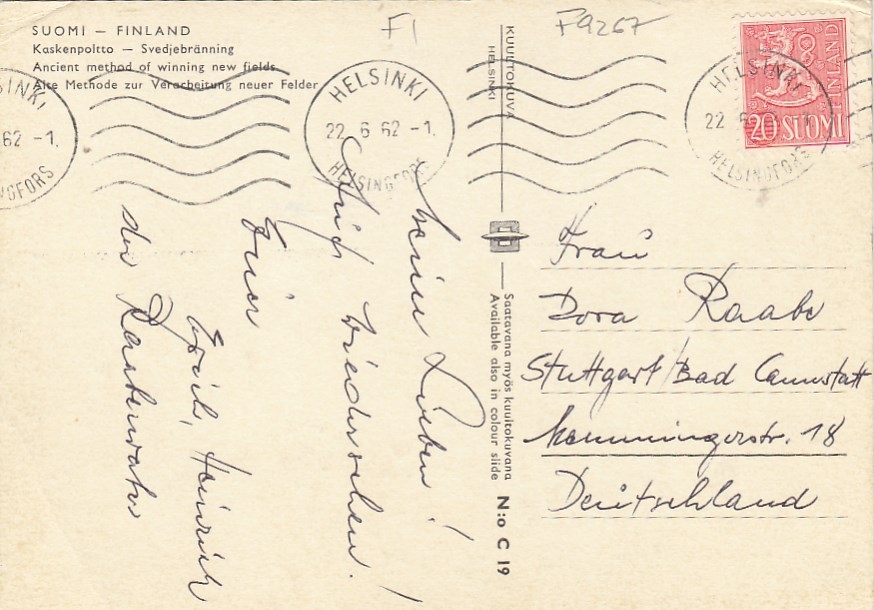 SUOMI — FINLAND
Kaskenpoltto — Svedjebränning
Ancient method of winning new fields
Alte Methode zur Verarbeitung neuer Felder
F1
F9267
HELSINKI
22 6 62 -1.
HELSINGFORS
INKI
62 -1.
NGFORS
HELSINKI
22
HELSINGFORS
FINLAND
20 SUOMI
KUULTOKUVA
HELSINKI
Saatavana myös kuultokuvana
Available also in colour slide
N:o C 19
Meine Lieben!
Auf Wiedersehen!
Euer
Heinrich
der
Frau
Dora Raabe
Stuttgart/Bad Cannstatt
Memmingerstr. 18
Deutschland